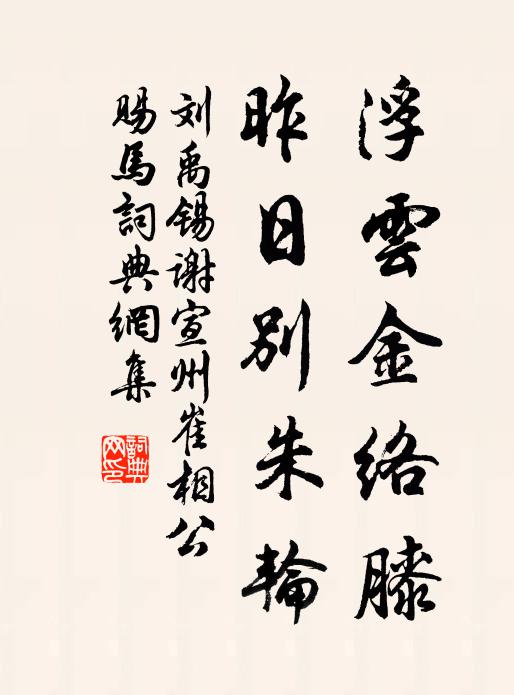 浮雲金络膝
昨日别朱輪
刘禹锡谢宣州崔相公
賜馬詞典網集
詞典
网印